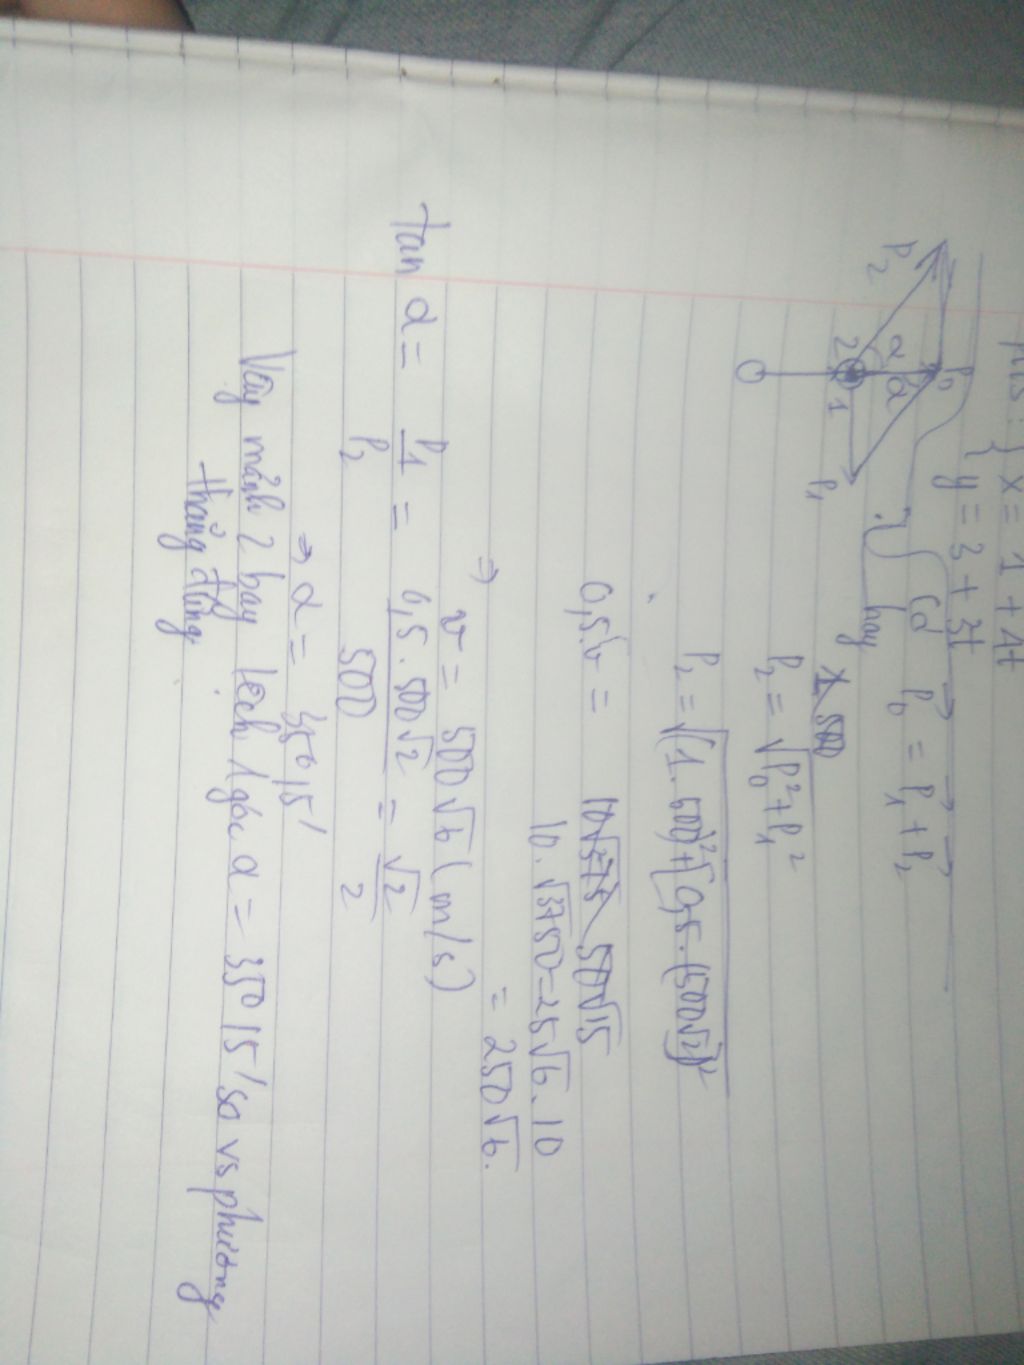 x = 1 + 4t
y = 3 + 3t
Có P₀ = P₁ + P₂
hay
P₀
α
α
P₂
2
1
P₁
P₂ = √P₀² + P₁²
P₂ = √(1.500)² + (0,5.(500√2))²
0,5.v =
50√15
10.√3750 = 25√6.10
= 250√6.
⇒ v = 500√6 (m/s)
tan α = P₁/P₂ = 0,5.500√2/500 = √2/2
⇒ α = 35°15'
Vậy mảnh 2 bay lệch 1 góc α = 35°15' so vs phương
thẳng đứng